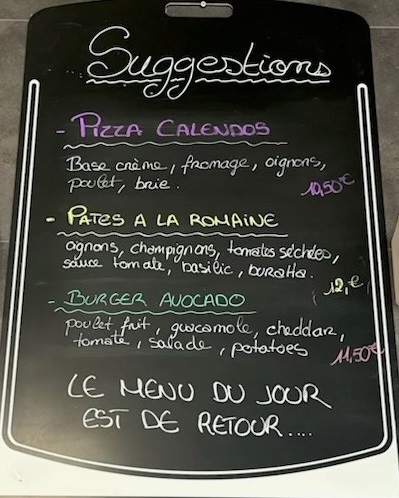 Suggestions
- PIZZA CALENDOS
Base crème, fromage, oignons,
poulet, brie.
10,50€
- PATES A LA ROMAINE
oignons, champignons, tomates séchées,
sauce tomate, basilic, buratta.
12,€
- BURGER AVOCADO
poulet frit, guacamole, cheddar,
tomate, salade, potatoes
11,50€
LE MENU DU JOUR
EST DE RETOUR....